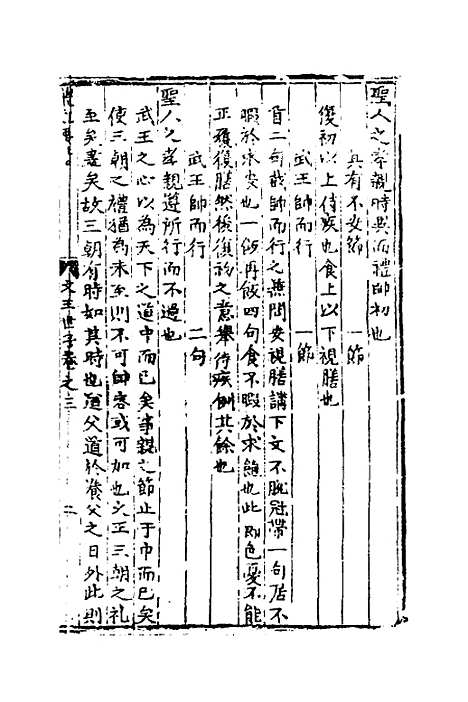 聖人之孝親時異而禮帥初也
其有不安節　一節
復初以上侍疾也食上以下視膳也
武王帥而行　一節
首二句截帥而行之兼問安視膳講下文不脫冠帶一句居不
暇於求安也一飯再飯四句食不暇於求飽也此即色憂不能
正履復膳然後復初之意舉侍疾例其餘也
武王帥而行　二句
聖人之孝親遵所行而不過也
武王之心以為天下之道中而已矣事親之節止于中而已矣
使三朝之禮猶為未至則不可帥容或可加也文王三朝之礼
至矣盡矣故三朝有時如其時也 父道於養父之日外此則
文王世子卷之三　二